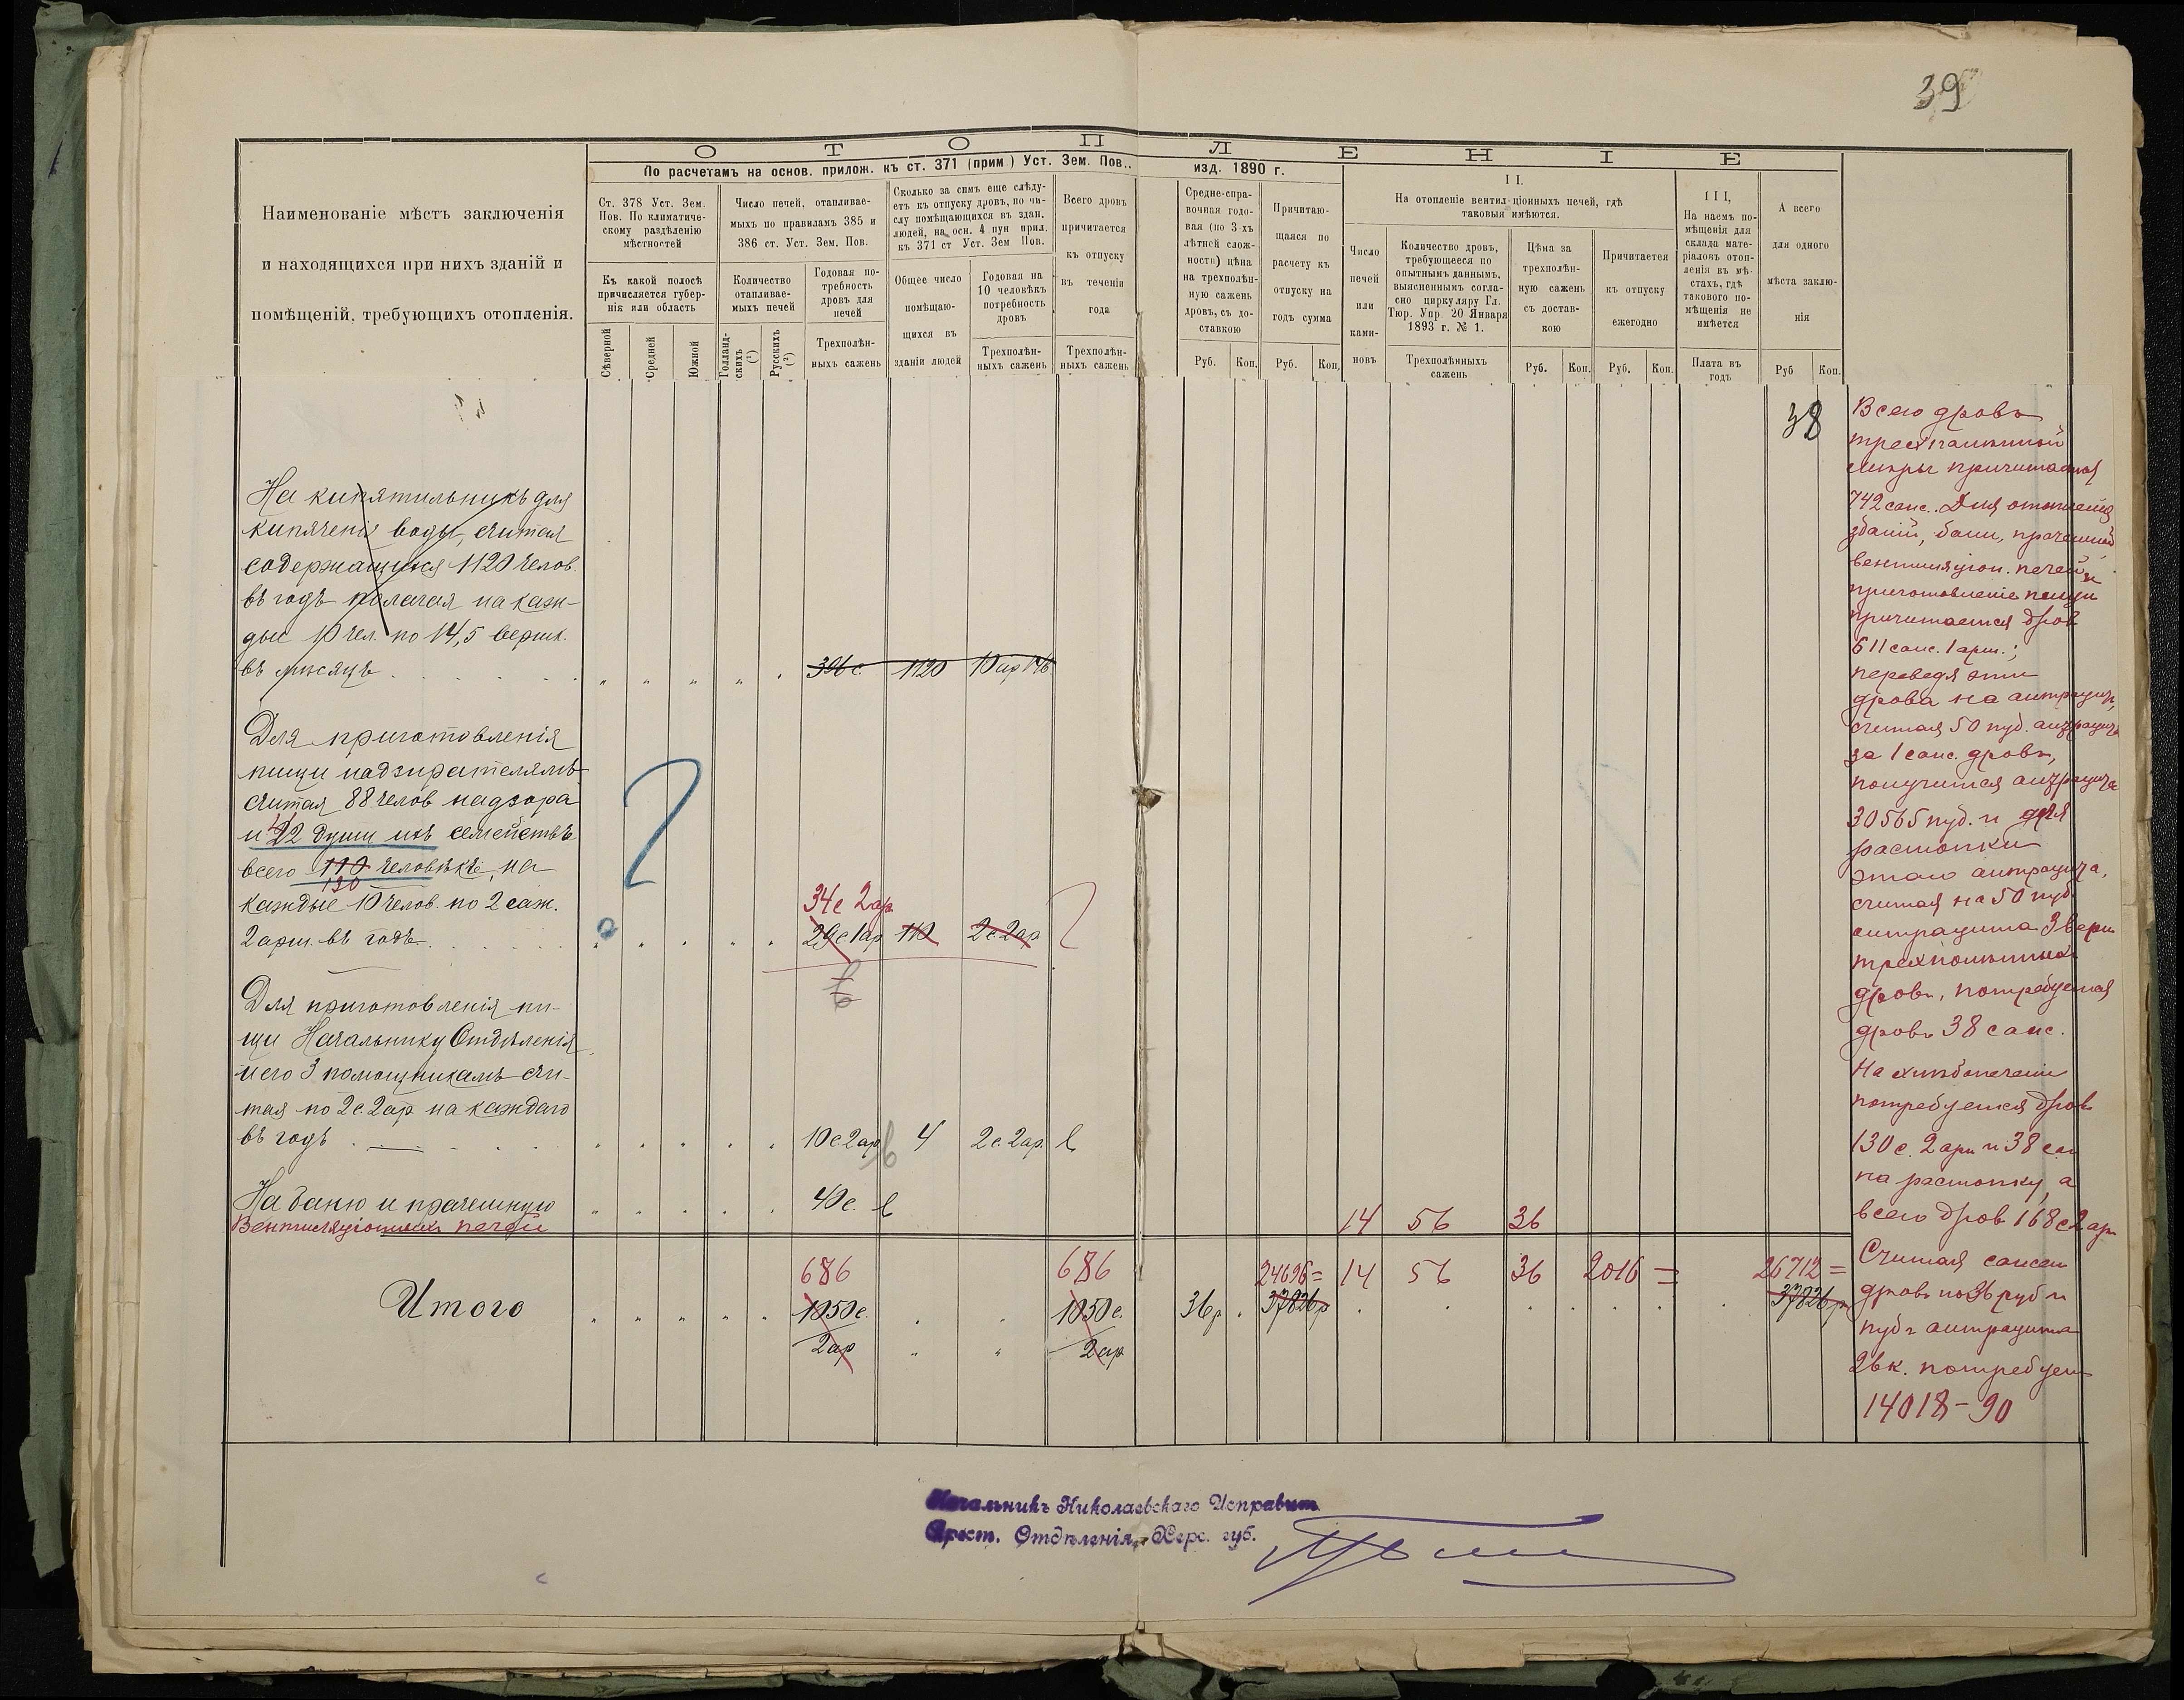 39
О Т О П Л Е Н I Е
По расчетамъ на основ. прилож. къ ст. 371 (прим) Уст. Зем. Пов.. изд. 1890 г.
Наименованіе мѣстъ заключенія
и находящихся при нихъ зданій и
помѣщеній, требующихъ отопленія.
Ст. 378 Уст. Зем.
Пов. По климатиче-
скому раздѣленію
мѣстностей
Къ какой полосѣ
причисляется губер-
нія или область
Сѣверной
Средней
Южной
Число печей, отапливае-
мыхъ по правиламъ 385 и
386 ст. Уст. Зем. Пов.
Количество
отапливае-
мыхъ печей
Голланд-
скихъ (¹)
Русскихъ (²)
Годовая по-
требность
дровъ для
печей
Трехполѣн-
ныхъ сажень
Сколько за симъ еще слѣду-
етъ къ отпуску дровъ, по чи-
слу помѣщающихся въ здан.
людей, на осн. 4 пун прил.
къ 371 ст Уст. Зем Пов.
Общее число
помѣщаю-
щихся въ
зданіи людей
Годовая на
10 человѣкъ
потребность
дровъ
Трехполѣн-
ныхъ сажень
Всего дровъ
причитается
къ отпуску
въ теченіи
года
Трехполѣн-
ныхъ сажень
Средне-спра-
вочная годо-
вая (по 3-хъ
лѣтней слож-
ности) цѣна
на трехполѣн-
ную сажень
дровъ, съ до-
ставкою
Руб. Коп.
Причитаю-
щаяся по
расчету къ
отпуску на
годъ сумма
Руб. Коп.
II.
На отопленіе вентиляціонныхъ печей, гдѣ
таковыя имѣются.
Число
печей
или
ками-
новъ
Количество дровъ,
требующееся по
опытнымъ даннымъ,
выясненнымъ согла-
сно циркуляру Гл.
Тюр. Упр 20 Января
1893 г. № 1.
Трехполѣнныхъ
сажень
Цѣна за
трехполѣн-
ную сажень
съ достав-
кою
Руб. Коп.
Причитается
къ отпуску
ежегодно
Руб. Коп.
III,
На наемъ по-
мѣщенія для
склада мате-
ріаловъ отоп-
ленія въ мѣ-
стахъ, гдѣ
такового по-
мѣщенія не
имѣется
Плата въ
годъ
А всего
для одного
мѣста заклю-
нія
Руб Коп.
38
На кипятильникъ для
кипяченія воды, считая
содержащихся 1120 челов.
въ годъ полагая на каж-
дые 10 чел. по 14,5 вершк.
въ мѣсяцъ 1120
Для приготовленія
пищи надзирателямъ
считая 88 челов надзора
и 22 души ихъ семействъ
всего 110 человѣкъ, на
130
каждые 10 челов. по 2 саж.
34с 2ар
2 арш. въ годъ 29с1ар 110 2с.2ар
Для приготовленія пи-
щи Начальнику Отдѣленія
и его 3 помощникамъ счи-
тая по 2с.2ар на каждаго
въ годъ 10с2ар. 4 2с.2ар.
На баню и прачешную 40с.
Вентиляціонныхъ печей 14 56 36
686 686 24696= 14 56 36 2016= 26712=
Итого 1050с. 1050с. 36р. 37826р 37826р
2ар 2ар
Всего дровъ
трехполѣнной
мѣры причитается
742 саж. Для отопленія
зданій, бани, прачешной
вентиляціон. печей и
приготовленіе пищи
причитается дровъ
611 саж. 1 арш.;
переведя эти
дрова на антрацитъ,
считая 50 пуд. антрацита
за 1 саж. дровъ,
получится антрацита
30565 пуд. и для
растопки
этого антрацита,
считая на 50 пуд.
антрацита 3 верш
трехполѣнныхъ
дровъ, потребуется
дровъ 38 саж.
На хлѣбопеченіе
потребуется дровъ
130 с. 2 арш и 38 саж
на растопку, а
всего дровъ 168с2ар
Считая сажень
дровъ по 36 руб и
пудъ антрацита
26к. потребуется
14018-90
Начальникъ Николаевскаго Исправит
Арест. Отдѣленія, Херс. губ.